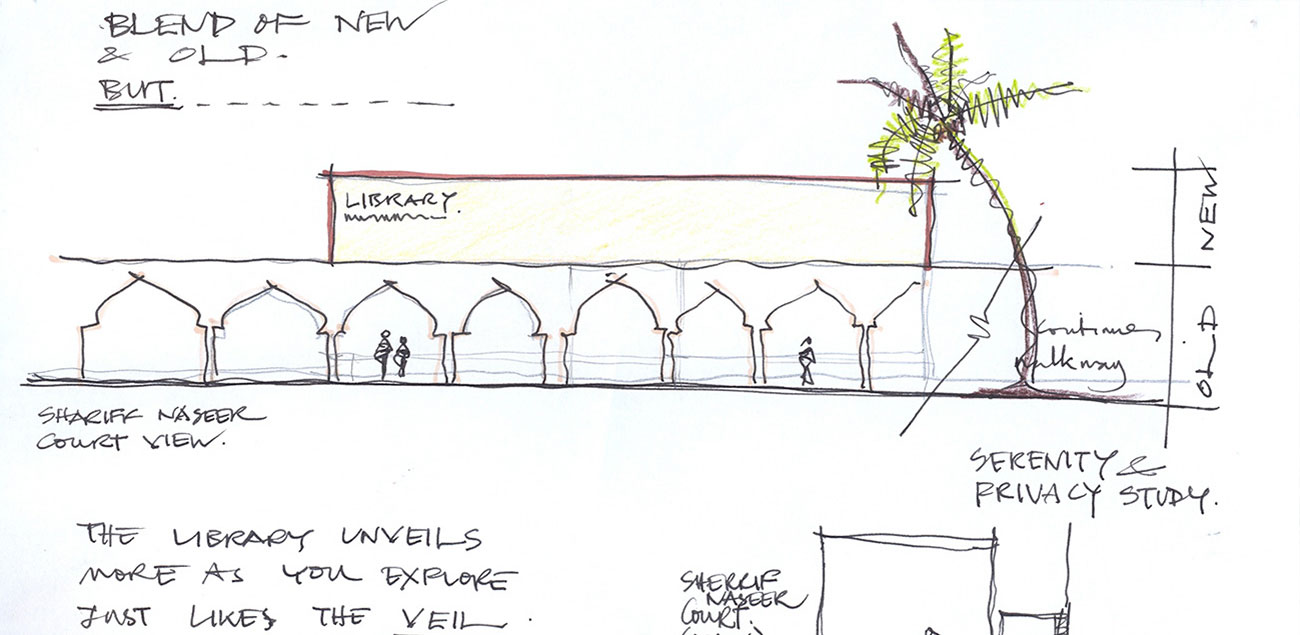 BLEND OF NEW
& OLD.
BUT.
LIBRARY.
NEW
OLD
continues
walkway
SHARIFF NASEER
COURT VIEW.
SERENITY &
PRIVACY STUDY.
THE LIBRARY UNVEILS
MORE AS YOU EXPLORE
JUST LIKES THE VEIL.
SHERRIF
NASEER
COURT.